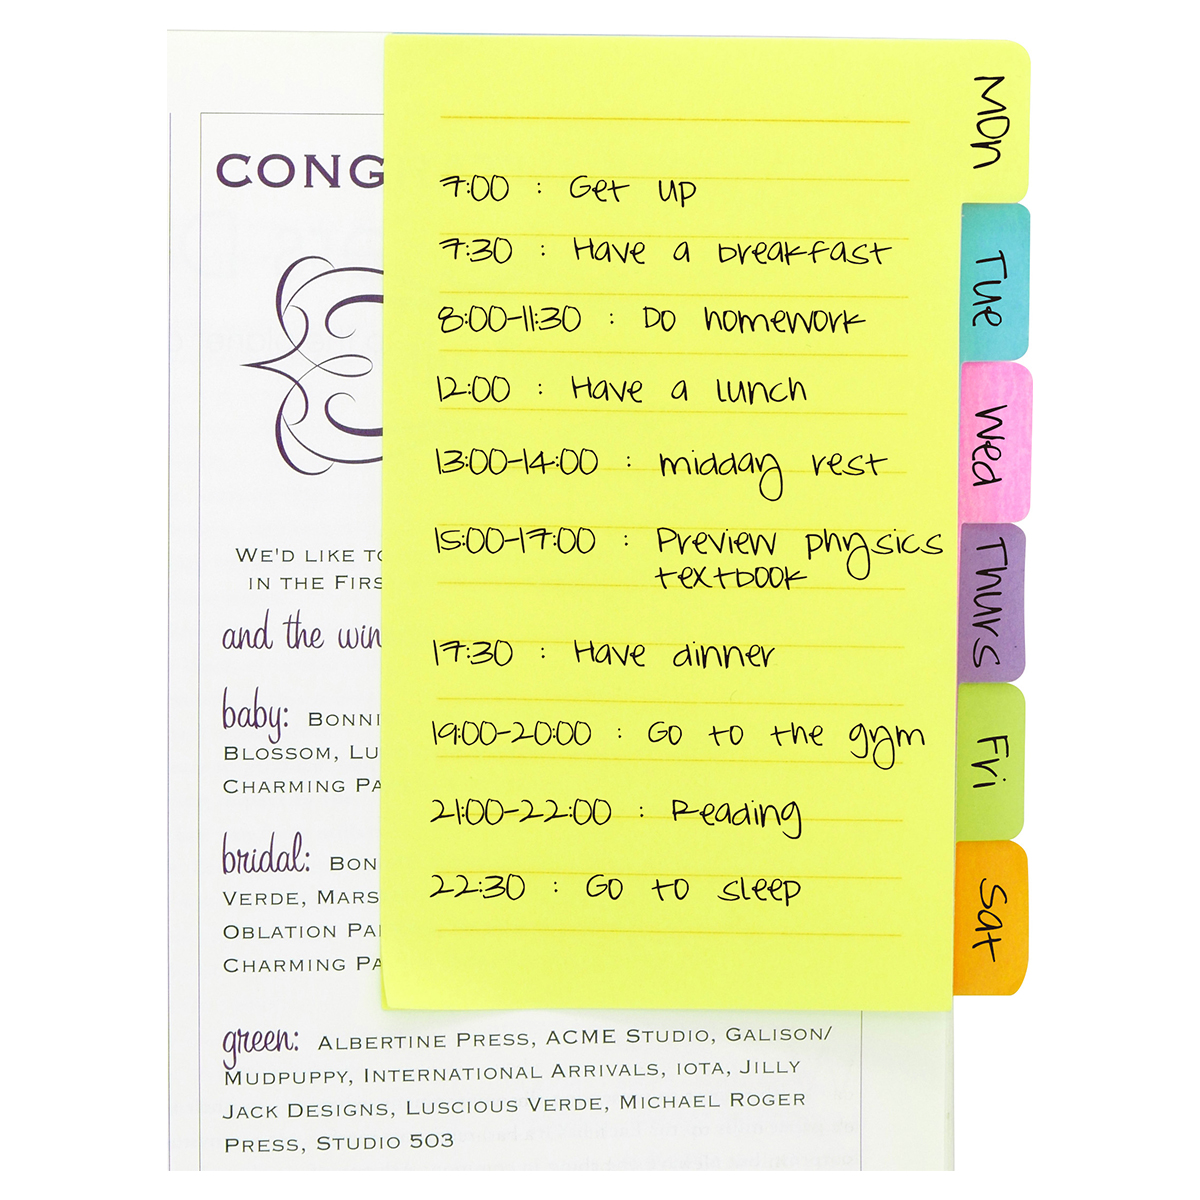 CONG
WE'D LIKE TO
IN THE FIRS
and the win
baby: BONNI
BLOSSOM, LU
CHARMING PA
bridal: BON
VERDE, MARS
OBLATION PA
CHARMING PA
green: ALBERTINE PRESS, ACME STUDIO, GALISON/
MUDPUPPY, INTERNATIONAL ARRIVALS, IOTA, JILLY
JACK DESIGNS, LUSCIOUS VERDE, MICHAEL ROGER
PRESS, STUDIO 503
7:00 : Get up
7:30 : Have a breakfast
8:00-11:30 : Do homework
12:00 : Have a lunch
13:00-14:00 : midday rest
15:00-17:00 : Preview physics
textbook
17:30 : Have dinner
19:00-20:00 : Go to the gym
21:00-22:00 : Reading
22:30 : Go to sleep
Mon
Tue
Wed
Thurs
Fri
Sat